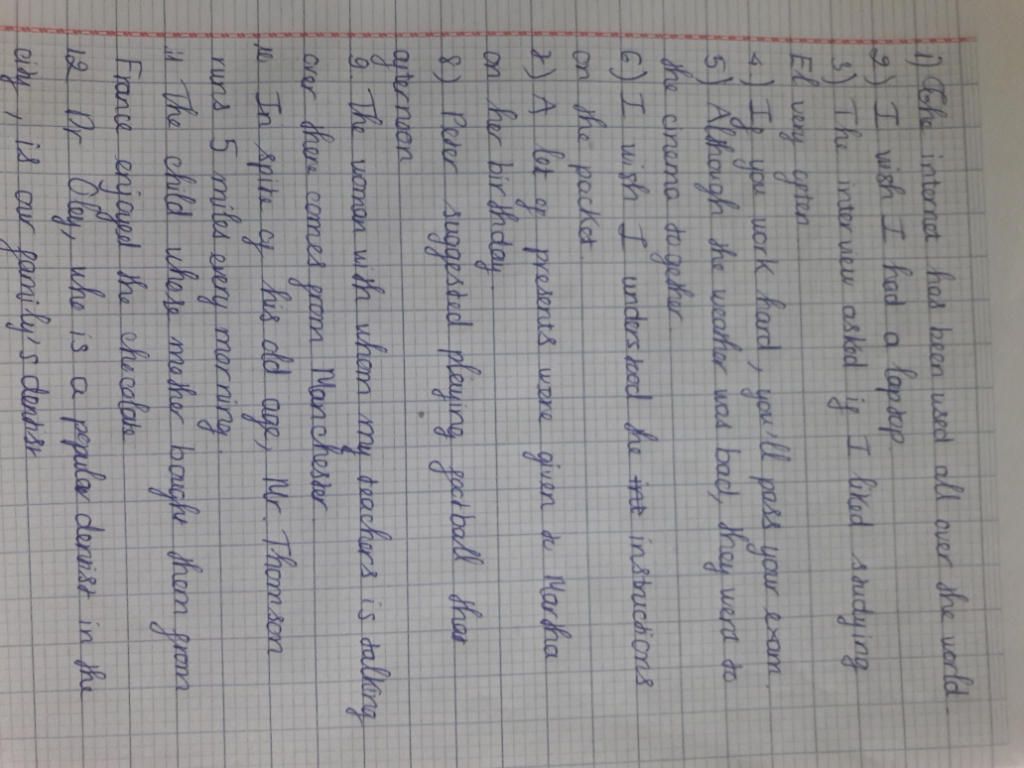 1) The internet has been used all over the world.
2) I wish I had a laptop
3) The interview asked if I liked studying
El very often
4) If you work hard, you'll pass your exam.
5) Although the weather was bad, they went to
the cinema together.
6) I wish I understood the instructions
on the packet.
7) A lot of presents were given to Martha
on her birthday
8) Peter suggested playing football that
afternoon
9 The woman with whom my teachers is talking
over there comes from Manchester
10 In spite of his old age, Mr. Thomson
runs 5 miles every morning.
11 The child whose mother bought them from
France enjoyed the chocolate
12 Dr Oley, who is a popular dentist in the
city, is our family's dentist